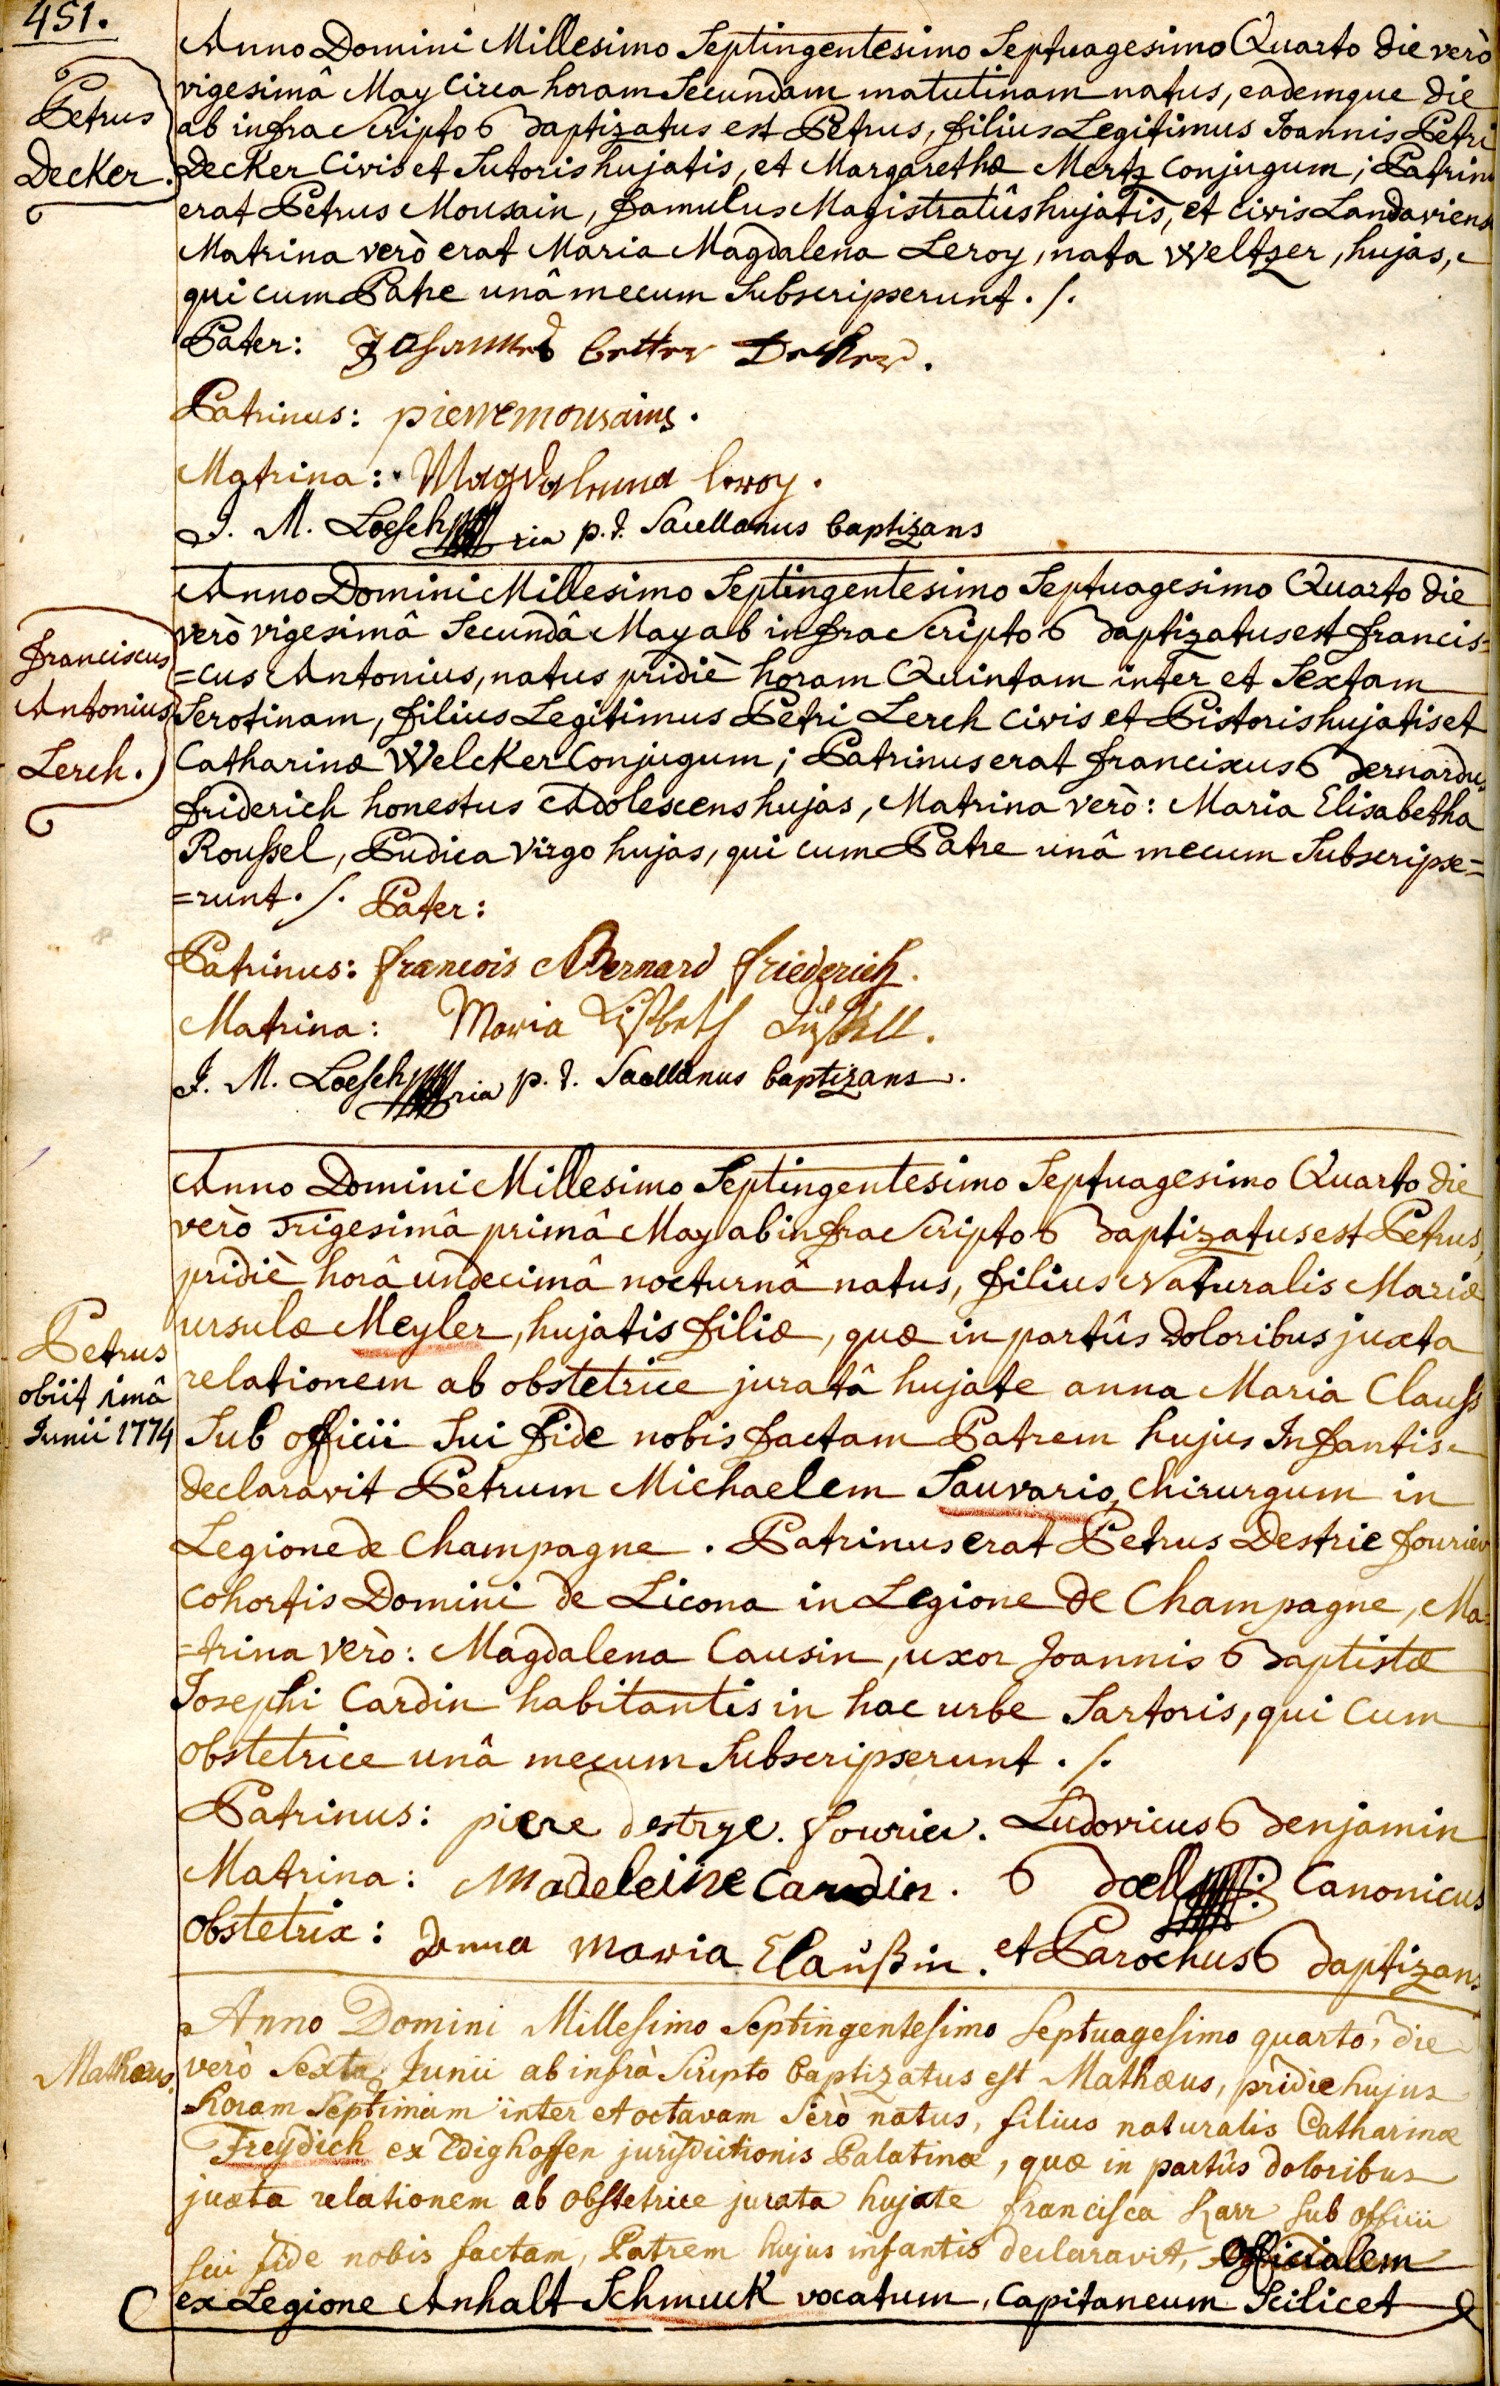 451.
Petrus
Decker.
Anno Domini Millesimo Septingentesimo Septuagesimo Quarto die verò
vigesimâ May circa horam Secundam matutinam natus, eademque die
ab infra Scripto Baptizatus est Petrus, filius Legitimus Joannis Petri
Decker Civis et Sutoris hujatis, et Margarethæ Mertz Conjugum; Patrin
erat Petrus Mousain, famulus Magistratûs hujatis, et civis Landaviens
Matrina verò erat Maria Magdalena Leroy, nata Weltzer, hujas,
qui cum Patre unâ mecum Subscripserunt ./.
Pater: Johannes better Decker.
Patrinus: pierre mousains.
Matrina: Magdalena leroy.
J. M. Loesch ria p.t. Sacellanus baptizans
Franciscus
Antonius
Lerch.
Anno Domini Millesimo Septingentesimo Septuagesimo Quarto die
verò vigesimâ Secundâ May ab infra Scripto Baptizatus est francis=
=cus Antonius, natus pridiè horam Quintam inter et Sextam
Serotinam, filius Legitimus Petri Lerch civis et Pistoris hujatis et
Catharinæ Welcker Conjugum; Patrinus erat franciscus Bernardus
friderich honestus Adolescens hujas, Matrina verò: Maria Elisabetha
Roussel, Pudica virgo hujas, qui cum Patre unâ mecum Subscripse=
=runt ./. Pater:
Patrinus: francois Bernard friederich.
Matrina: Maria
J. M. Loesch ria p.t. Sacellanus baptizans.
Petrus
obiit 1mâ
Junii 1774
Anno Domini Millesimo Septingentesimo Septuagesimo Quarto die
verò Trigesimâ primâ May ab infra Scripto Baptizatus est Petrus,
pridiè horâ undecimâ nocturnâ natus, filius Naturalis Mariæ
ursulæ Meyler, hujatis filiæ, quæ in partûs doloribus juxta
relationem ab obstetrice juratâ hujate anna Maria Clauss
Sub officii Sui fide nobis factam Patrem hujus Infantis
declaravit Petrum Michaelem Sauvario, Chirurgum in
Legione de Champagne. Patrinus erat Petrus Destrie fourier
cohortis Domini de Licona in Legione de Champagne, Ma=
=trina verò: Magdalena Causin, uxor Joannis Baptistæ
Josephi Cardin habitantis in hac urbe Sartoris, qui Cum
obstetrice unâ mecum Subscripserunt ./.
Patrinus: piere destrye. fourier. Ludovicus Benjamin
Matrina: Madeleine Cardin. Canonicus
Obstetrix: Anna Maria Claußin. et Parochus Baptizans
Mathæus.
Anno Domini Millesimo Septingentesimo Septuagesimo quarto, die
verò Sexta Junii ab infrà Scripto baptizatus est Mathæus, pridie hujus
horam Septimam inter et octavam Serò natus, filius naturalis Catharinæ
Freydich ex Edighoffen jurisdictionis Palatinæ, quæ in partûs doloribus
juxta relationem ab obstetrice jurata hujate francisca Karr Sub officii
sui fide nobis factam, Patrem hujus infantis declaravit, Officialem
ex Legione Anhalt Schmuck vocatum, Capitaneum Scilicet